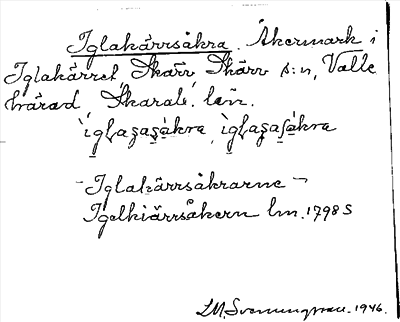 Iglakärrsåkra. Åkermark i
Iglakärret Skärv, Skärv s:n, Valle
härad Skarab. län.
ìglaʂaʂåkra, ìglaʂaʂåkra
- Iglakärrsåkrarne -
Igelkiärrsåkern lm. 1798 S
LM. Svenungsson. 1946.